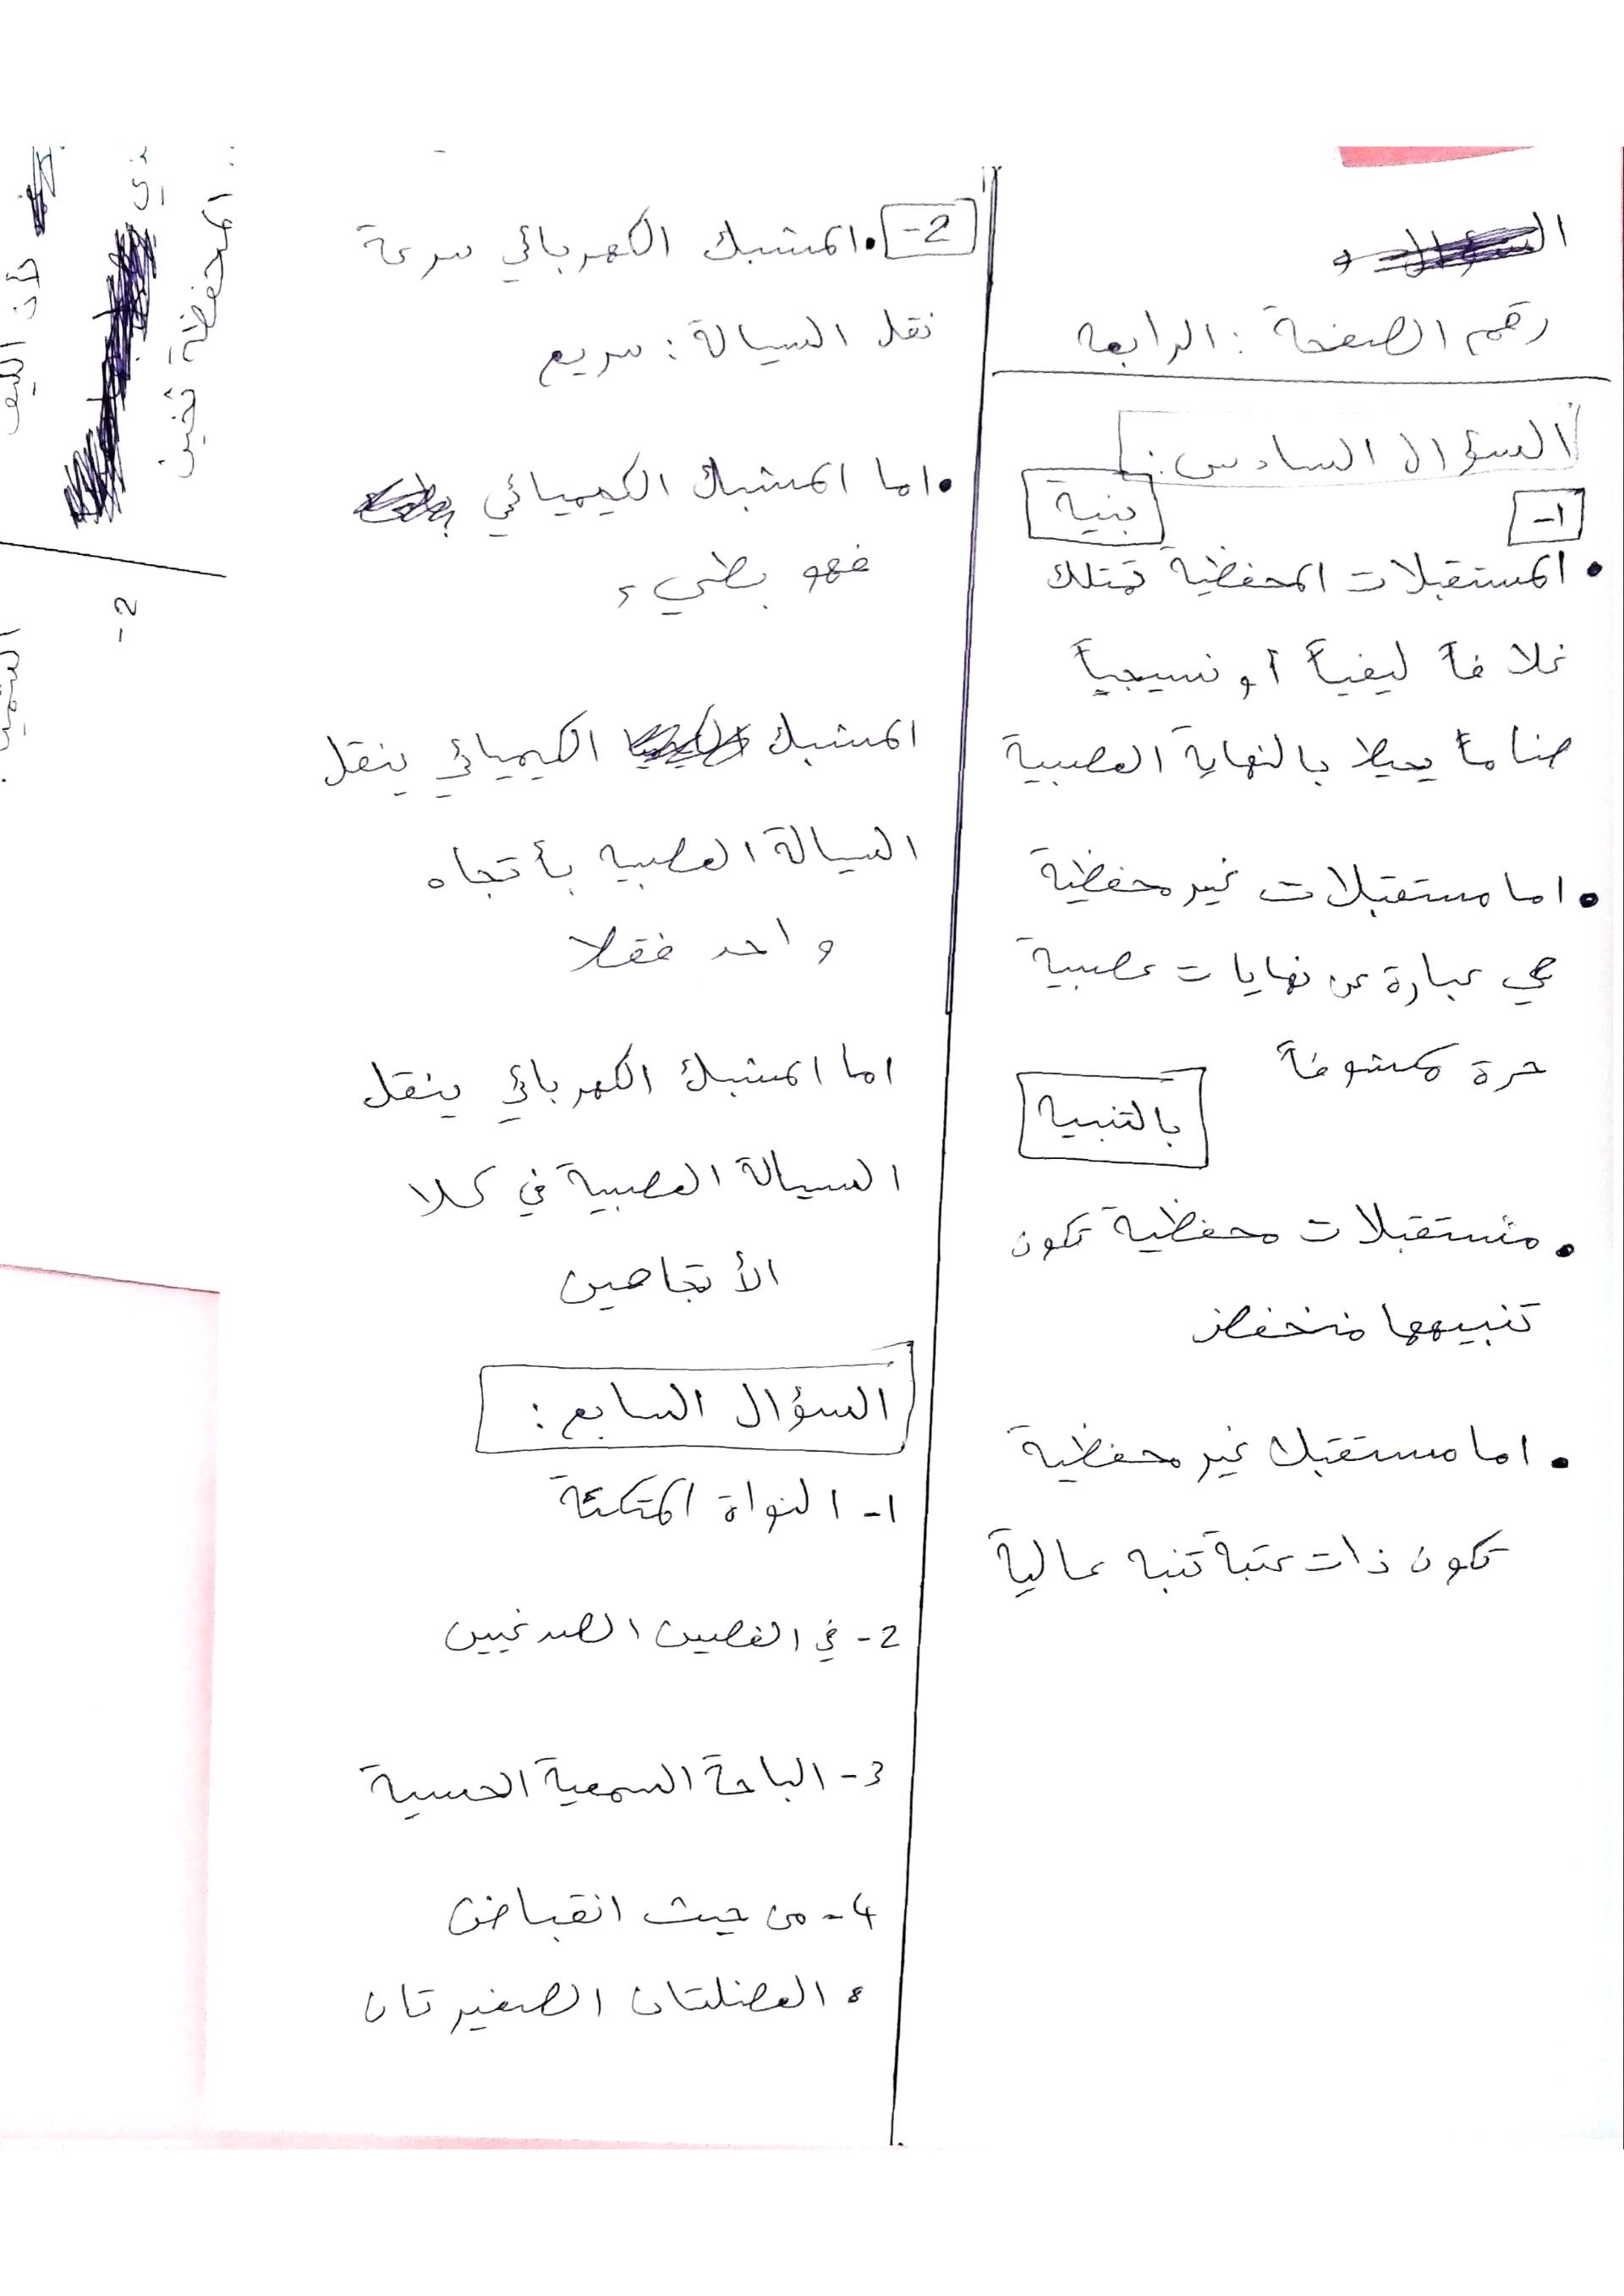 رقم الصفحة : الرابعه
السؤال السادس :
1-
بنية
• المستقبلات المحفظية تمتلك
غلافاً ليفياً أو نسيجياً
ضاماً يحيط بالنهاية العصبية
• اما مستقبلات غير محفظية
هي عبارة عن نهايات عصبية
حرة مكشوفاً
بالتنبيه
• مستقبلات محفظية تكون
تنبيهها منخفض
• اما مستقبلات غير محفظية
تكون ذات عتبة تنبه عالية
2-
• المشبك الكهربائي سرعة
نقل السيالة : سريع
• اما المشبك الكيميائي
فهو بطيء
المشبك الكيميائي ينقل
السيالة العصبيه بأتجاه
واحد فقط
اما المشبك الكهربائي ينقل
السيالة العصبية في كلا
الأتجاهين
السؤال السابع :
1- النواة المتكئة
2- في الفصين الصدغيين
3- الباحة السمعية الحسية
4- من حيث انقباض
العضلتان الصغيرتان
المحفظة ثخين
2-
لأن الليف